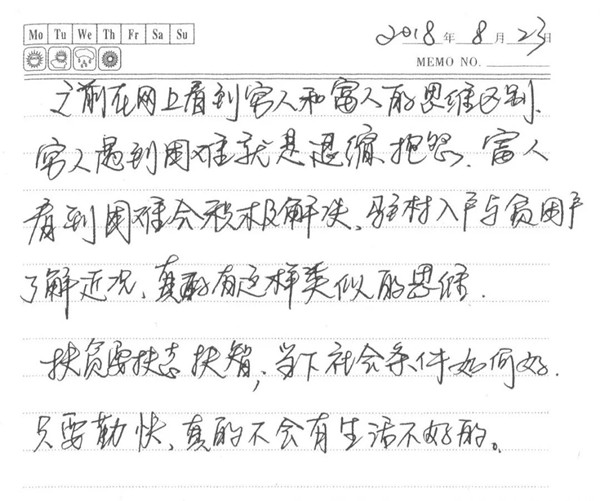 Mo Tu We Th Fr Sa Su
2018年8月23日
MEMO NO.
之前在网上看到穷人和富人的思维区别.
穷人遇到困难就是退缩抱怨.富人
看到困难会积极解决、驻村入户与贫困户
了解近况、真的有这样类似的思维.
扶贫要扶志扶智,当下社会条件如何好.
只要勤快,真的不会有生活不好的。